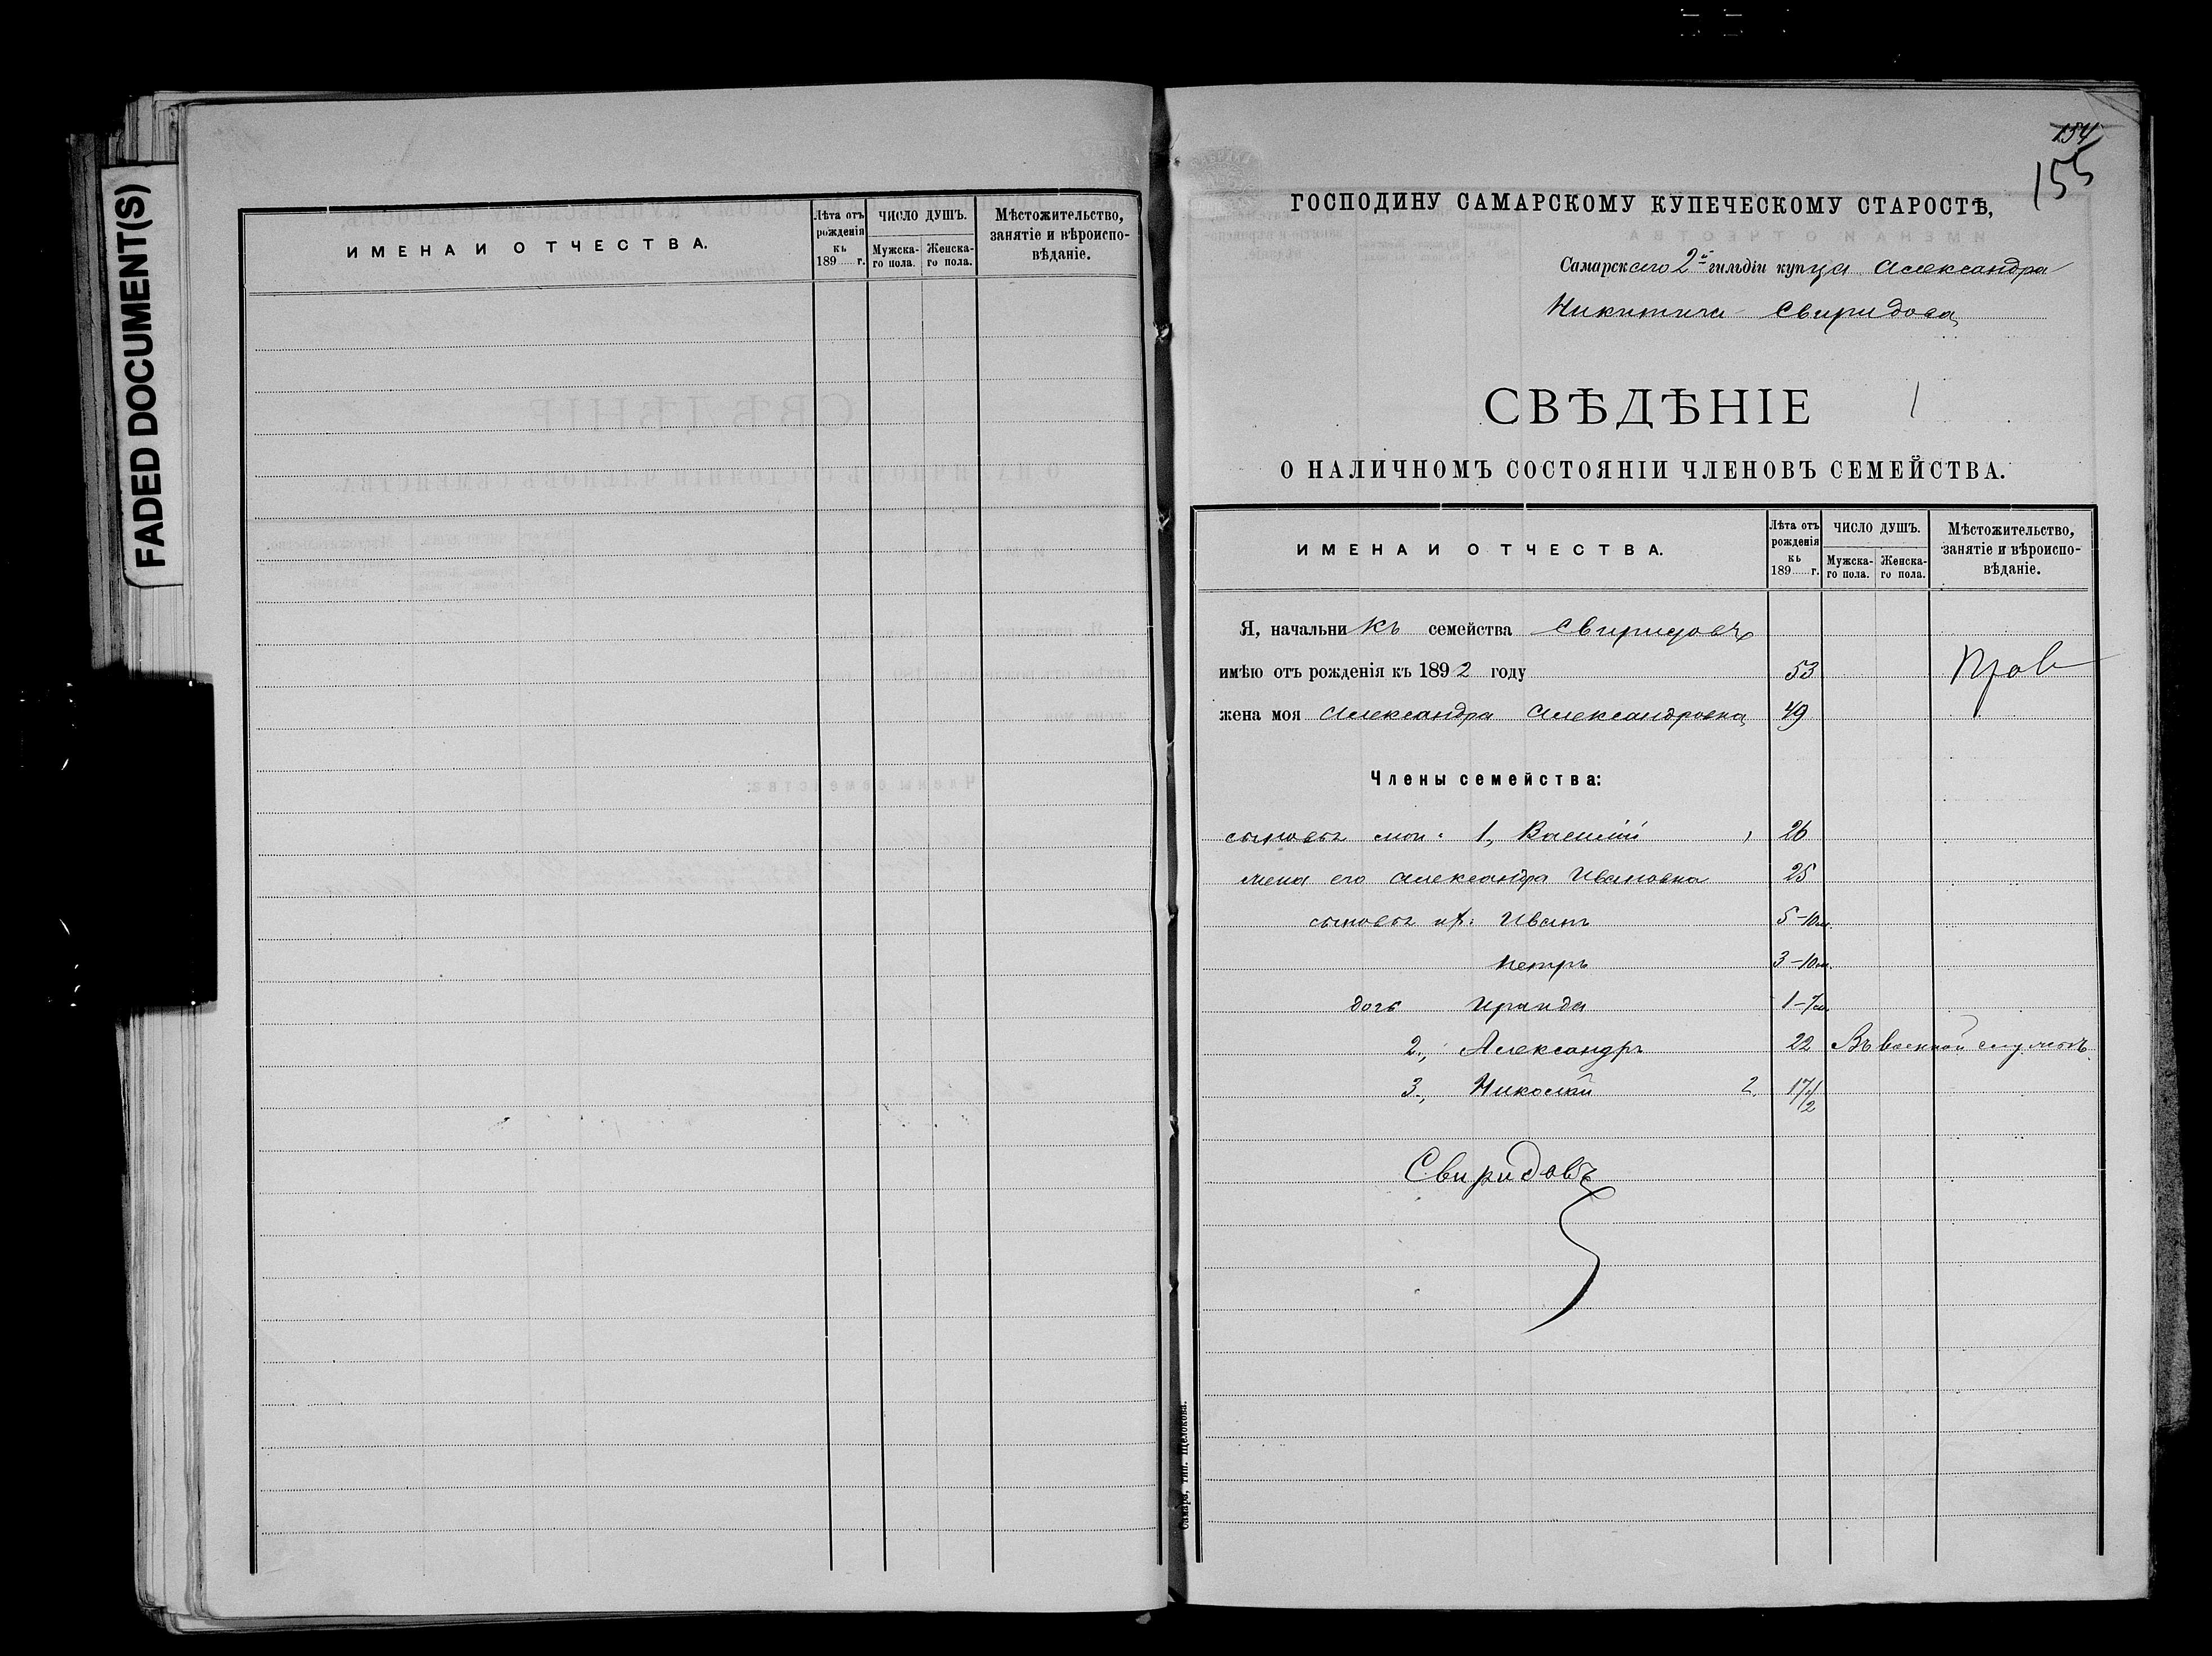 FADED DOCUMENT(S)
ИМЕНА И ОТЧЕСТВА.
Лѣта отъ рожденія къ 189 г.
ЧИСЛО ДУШЪ.
Мужска-го пола.
Женска-го пола.
Мѣстожительство, занятіе и вѣроиспо-вѣданіе.
154
155
ГОСПОДИНУ САМАРСКОМУ КУПЕЧЕСКОМУ СТАРОСТѢ,
Самарскаго 2й гильдіи купца Александра
Никитича Свиридова
СВѢДѢНІЕ
О НАЛИЧНОМЪ СОСТОЯНІИ ЧЛЕНОВЪ СЕМЕЙСТВА.
ИМЕНА И ОТЧЕСТВА.
Лѣта отъ рожденія къ 189 г.
ЧИСЛО ДУШЪ.
Мужска-го пола.
Женска-го пола.
Мѣстожительство, занятіе и вѣроиспо-вѣданіе.
Я, начальникъ семейства Свиридовъ
имѣю отъ рожденія къ 1892 году 53 Прав
жена моя Александра Александровна 49
Члены семейства:
сыновья мои: 1, Василій 26
жена его Александра Ивановна 25
сыновья их: Иванъ 5-10м.
Петръ 3-10м.
дочь Ираида 1-7м.
2., Александръ 22 Въ военной службѣ
3., Николай 2. 17 1/2
Свиридовъ
Самара, тип. Щелокова.